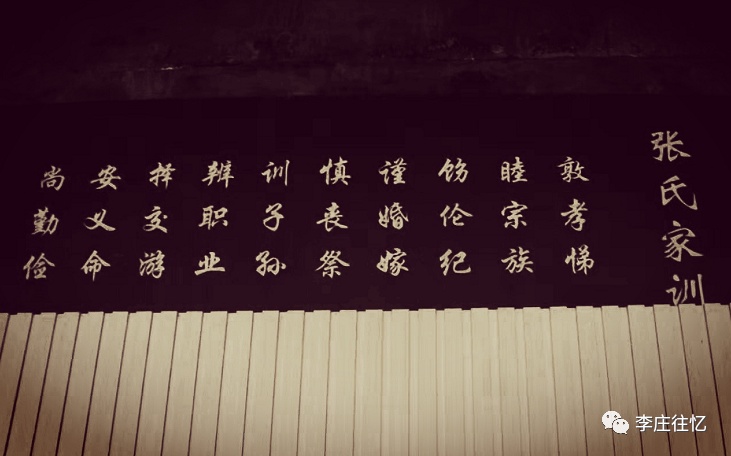 张氏家训
敦孝悌
睦宗族
饬伦纪
谨婚嫁
慎丧祭
训子孙
辨职业
择交游
安义命
尚勤俭
李庄往忆